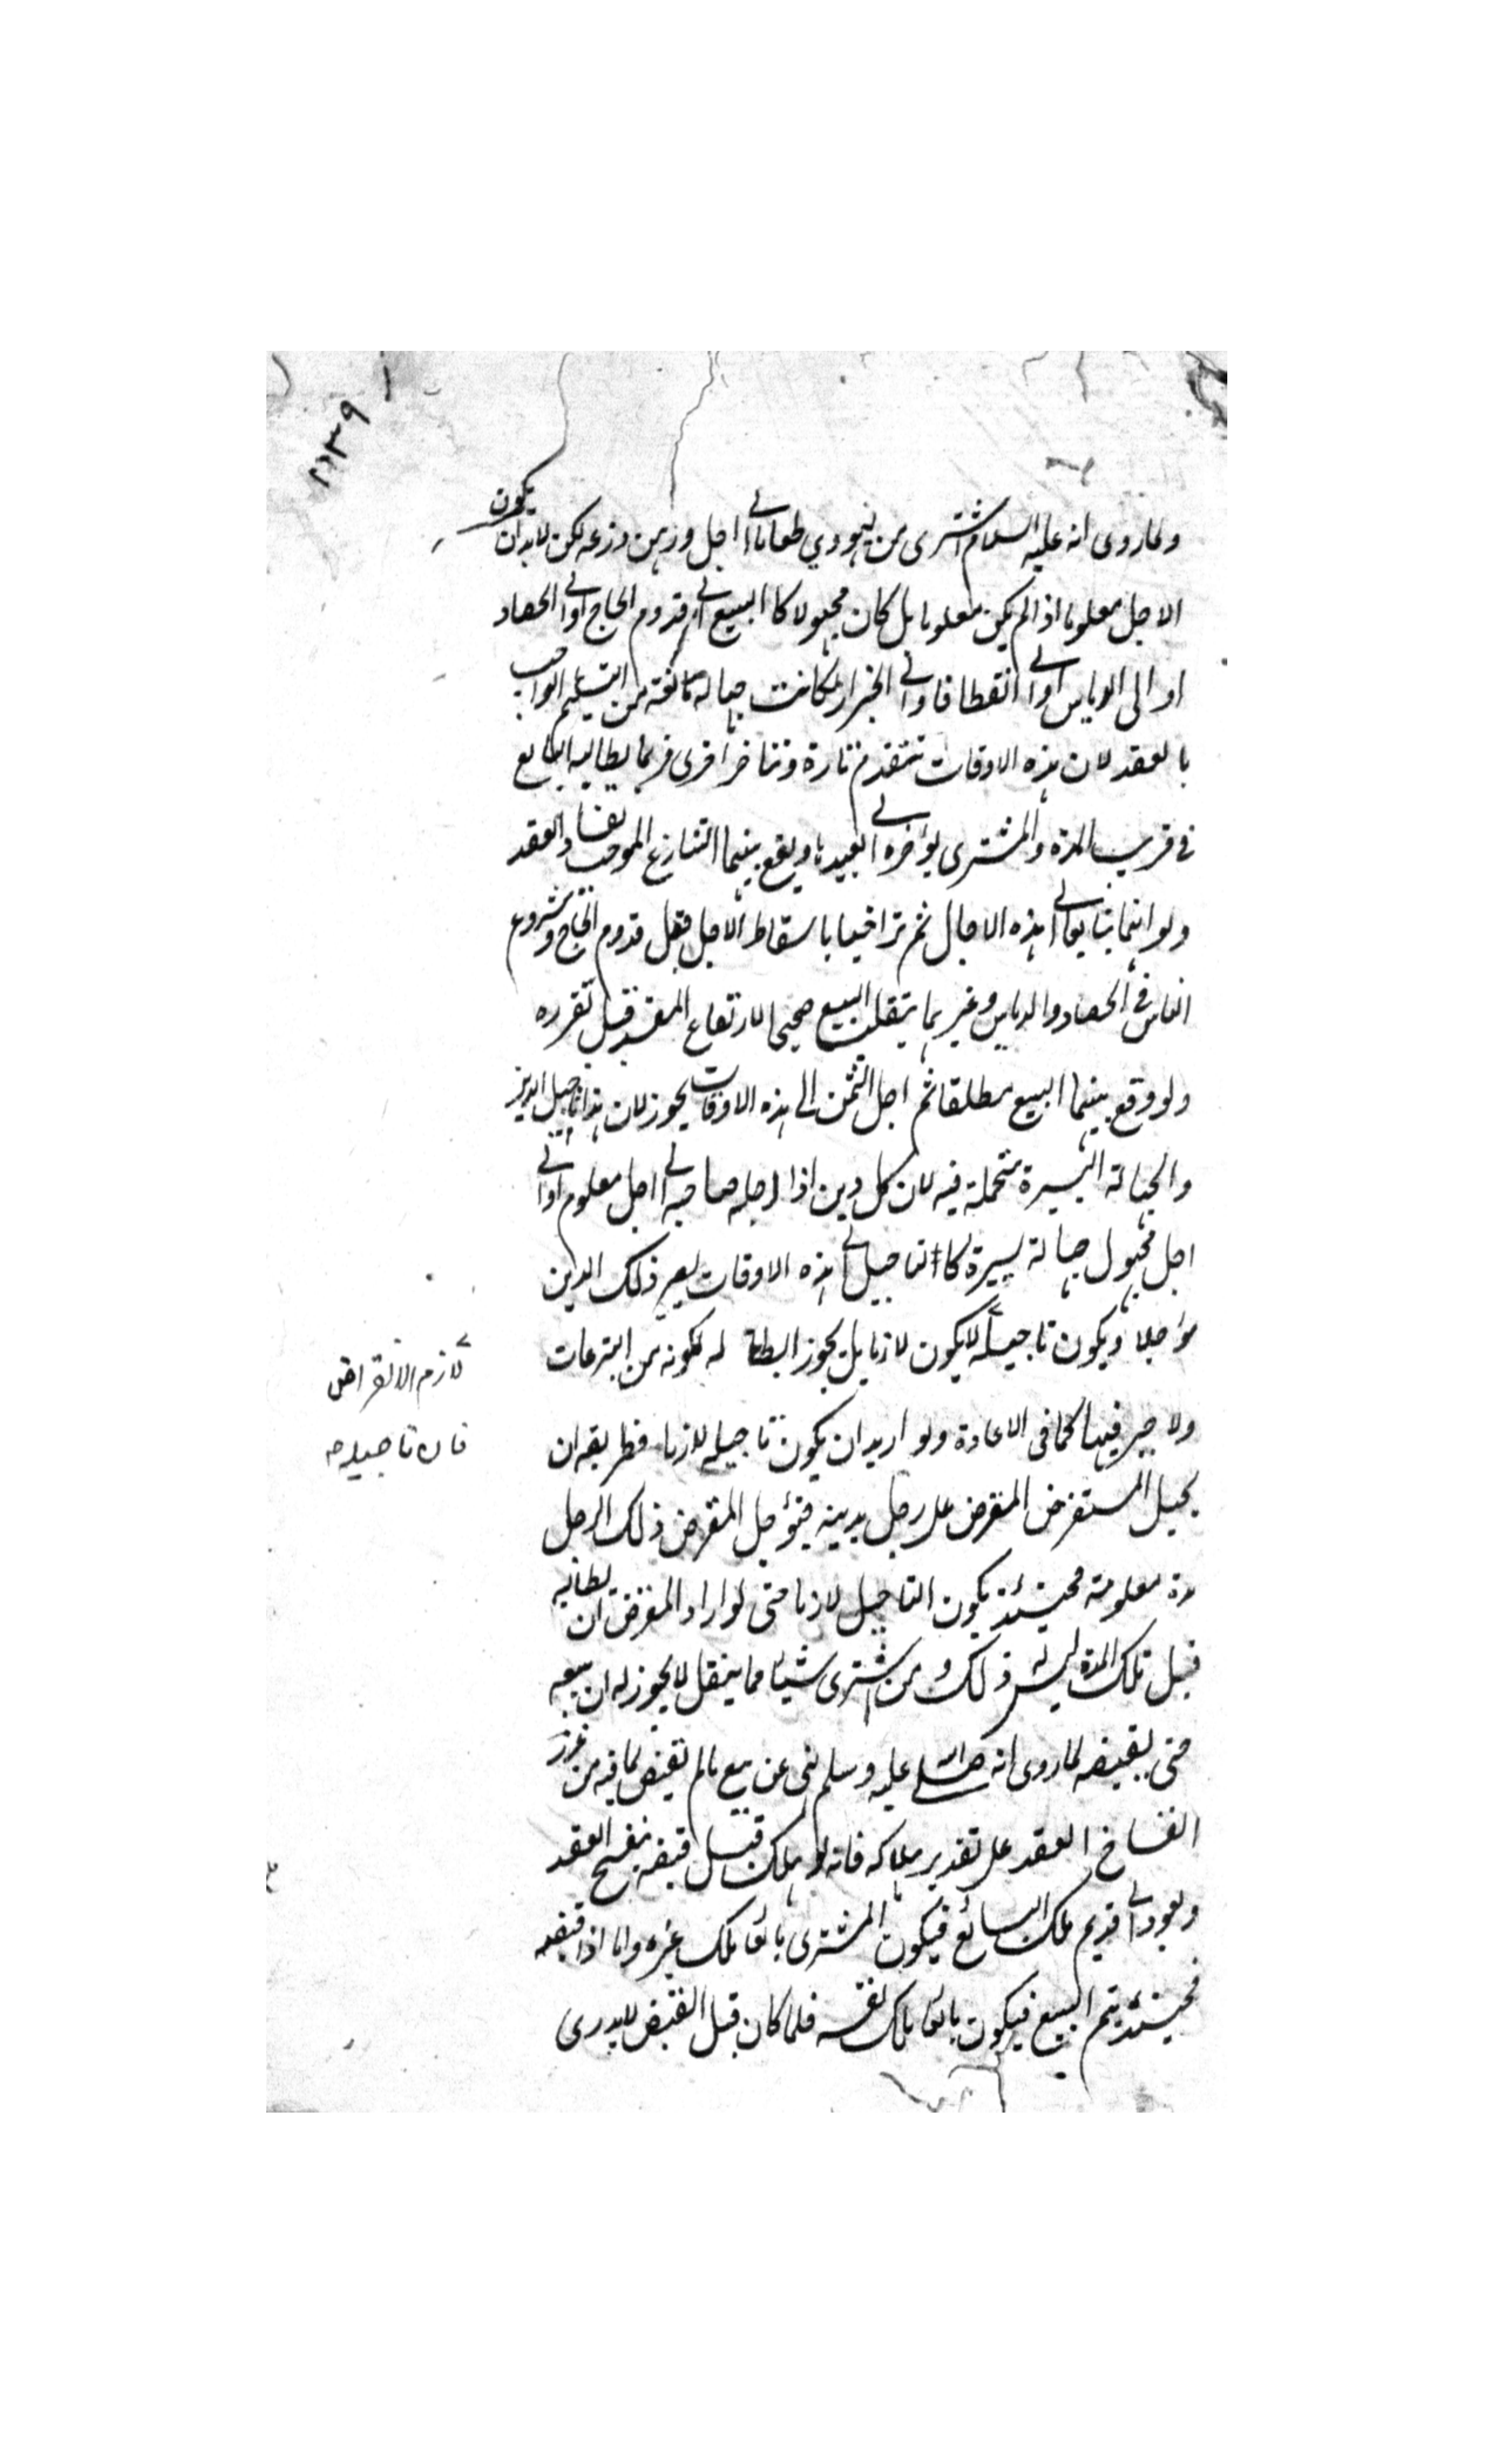 ٢٣٩
ولما روى انه عليه السلام اشترى من يهودي طعاما الى اجل ورهن درعه لكن لابد ان يكون
الاجل معلوما اذ لو لم يكن معلوما بل كان مجهولا كالبيع الى قدوم الحاج او الى الحصاد
او الى الدياس او الى القطاف او الى الجزاز لكانت جهالة مانعة من التسليم الواجب
بالعقد لان هذه الاوقات تتقدم تارة وتتاخر اخرى فربما يطالبه البايع
في قريب المدة والمشترى يؤخره الى بعيدها ويقع بينهما التنازع الموجب لفساد العقد
ولو انهما تبايعا الى هذه الاجال ثم تراضيا باسقاط الاجل قبل قدوم الحاج وشروع
الناس في الحصاد والدياس وغيرهما ينقلب البيع صحيحا لارتفاع المفسد قبل تقرره
ولو وقع بينهما البيع مطلقا ثم اجل الثمن الى هذه الاوقات يجوز لان هذا تاجيل الدين
والجهالة اليسيرة متحملة فيه لان كل دين اذا اجله صاحبه الى اجل معلوم او الى
اجل مجهول جهالة يسيرة كالتاجيل الى هذه الاوقات يصير ذلك الدين
مؤجلا ويكون تاجيله لا يكون لازما بل يجوز ابطاله لكونه من التبرعات
ولا جبر فيها كما في الاعارة ولو اريد ان يكون تاجيله لازما فطريقه ان
يحيل المستقرض المقرض على رجل بدينه فيؤجل المقرض ذلك الرجل
مدة معلومة فحينئذ يكون التاجيل لازما حتى لو اراد المقرض ان يطالبه
قبل تلك المدة ليس له ذلك ومن اشترى شيئا مما ينقل لا يجوز له ان يبيعه
حتى يقبضه لما روى انه صلى الله عليه وسلم نهى عن بيع ما لم يقبض لما فيه من غرر
انفساخ العقد على تقدير هلاكه فانه لو هلك قبل قبضه ينفسخ العقد
ويعود الى قديم ملك البائع فيكون المشترى بائعا ملك غيره واما اذا قبضه
فحينئذ يتم البيع فيكون بائعا ملك نفسه فلما كان قبل القبض لا يدرى
لازم الا القراض
فان تاجيله